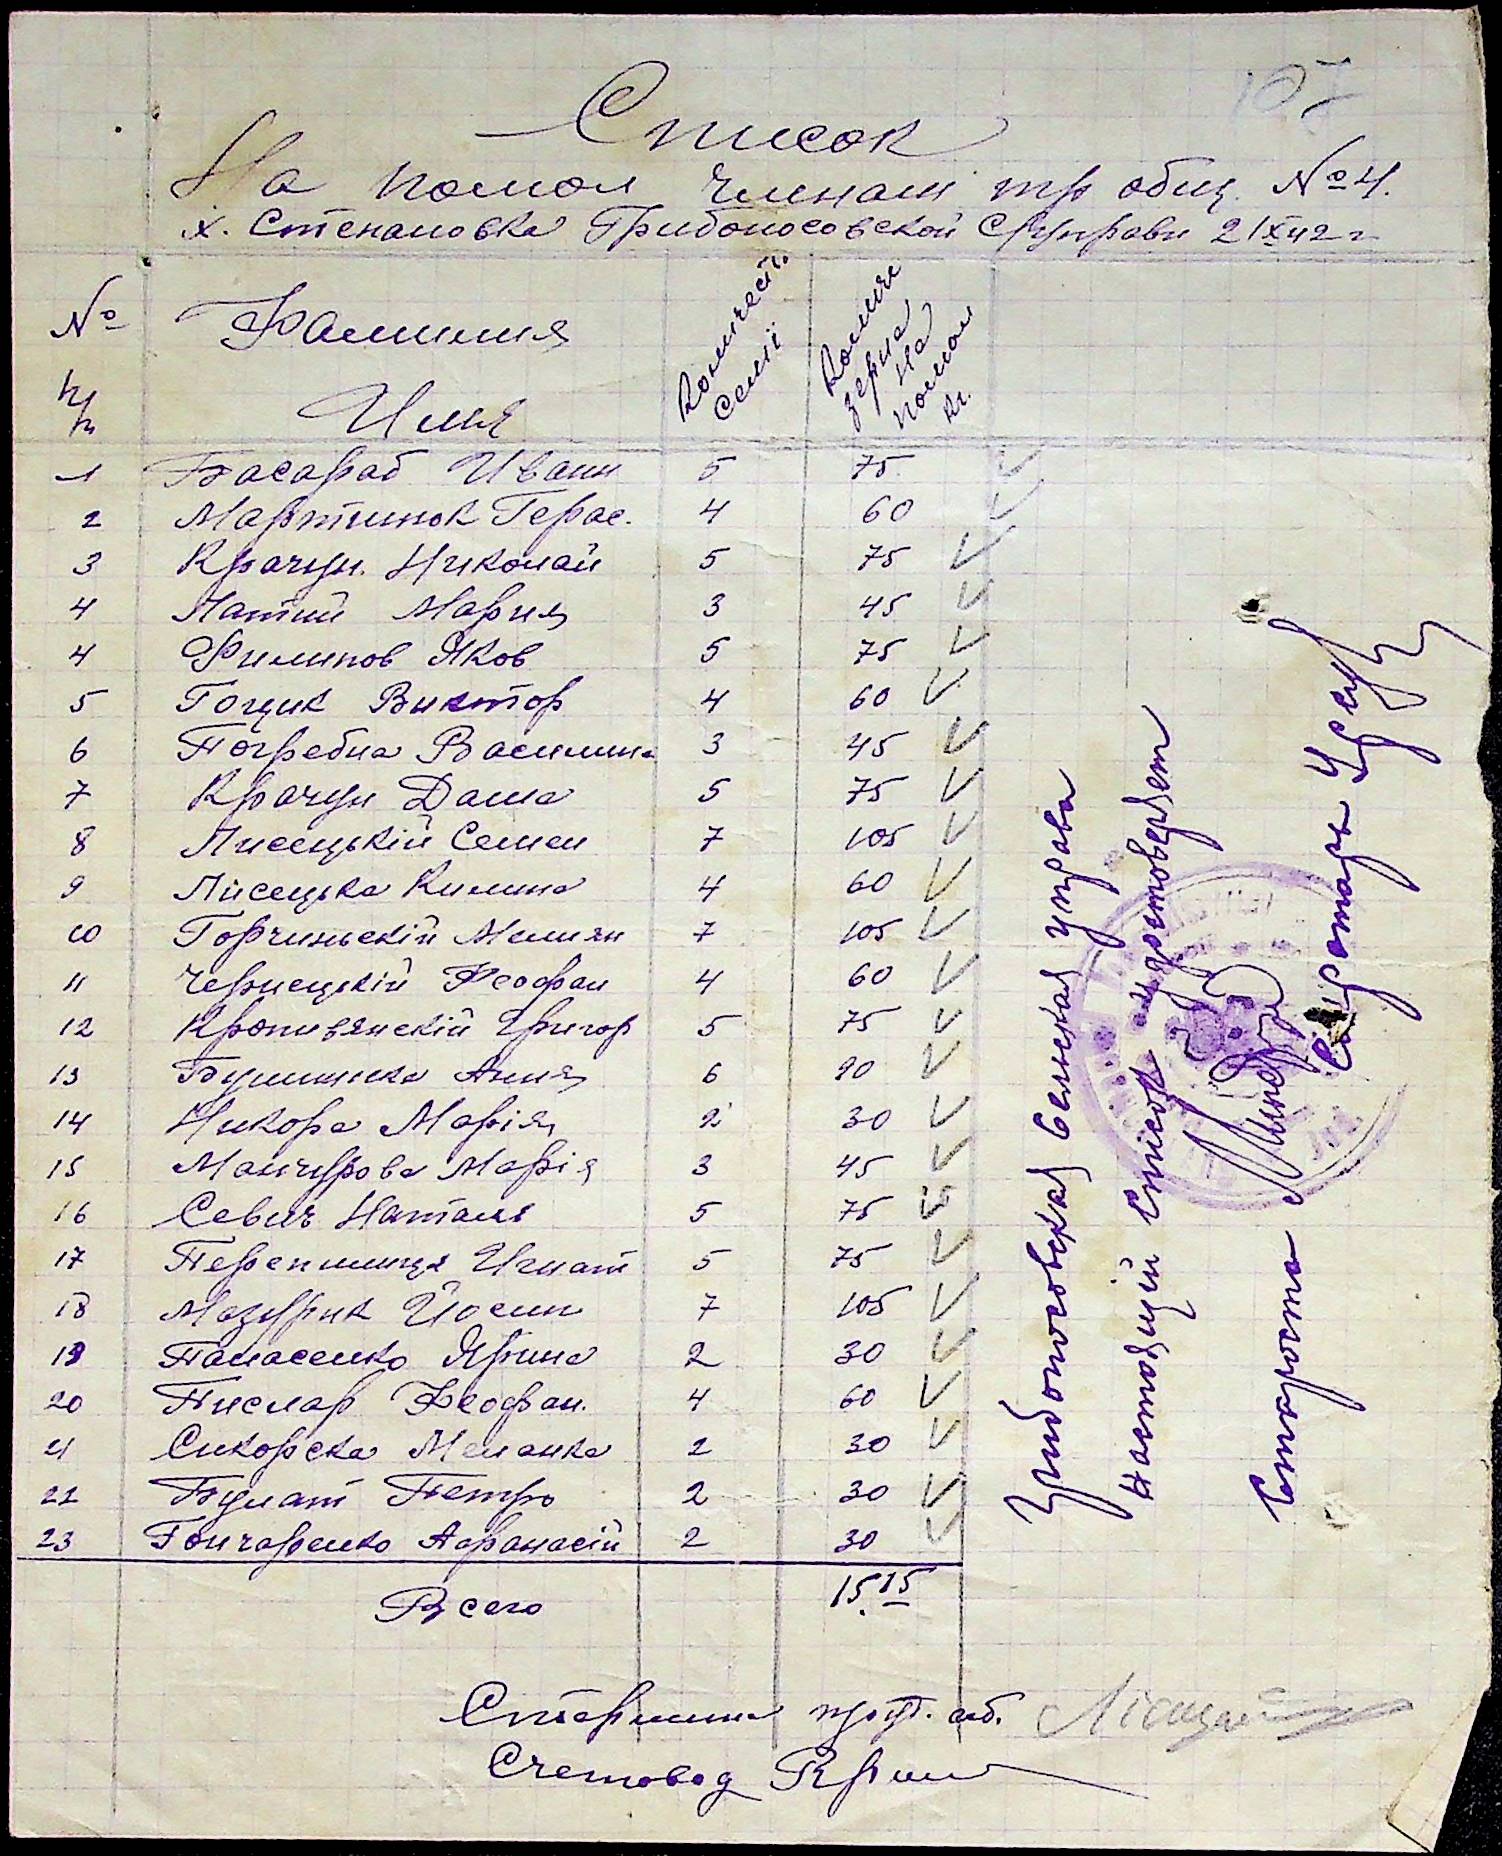 107
Список
На помол членам тр общ. № 4.
х. Степановка Грибоносовской С/управи 21 XI 42 г
№ п/п Фамилия Имя Количест. семії Количе зерна на помол кг.
1 Басараб Иван 5 75
2 Мартинюк Герас. 4 60
3 Крачун Николай 5 75
4 Латий Мария 3 45
4 Филипов Яков 5 75
5 Гоцик Виктор 4 60
6 Погребна Василина 3 45
7 Крачун Даша 5 75
8 Лисецькій Семен 7 105
9 Лисецька Килина 4 60
10 Горчинскій Мелиян 7 105
11 Чернецькій Феофан 4 60
12 Кропивянскій Григор 5 75
13 Бушинска Анна 6 90
14 Никора Марія 2 30
15 Манчурова Марія 3 45
16 Севич Наталя 5 75
17 Перепилица Игнат 5 75
18 Мазурик Йосип 7 105
19 Панасенко Ярина 2 30
20 Пислар Феофан. 4 60
21 Сикорска Меланка 2 30
22 Булат Петро 2 30
23 Гончаренко Афанасій 2 30
Всего 15.15
Старшина труд. об.
Счетовод
Грибоносовская сельская управа
настоящий список удостоверяет
Староста
Секретарь